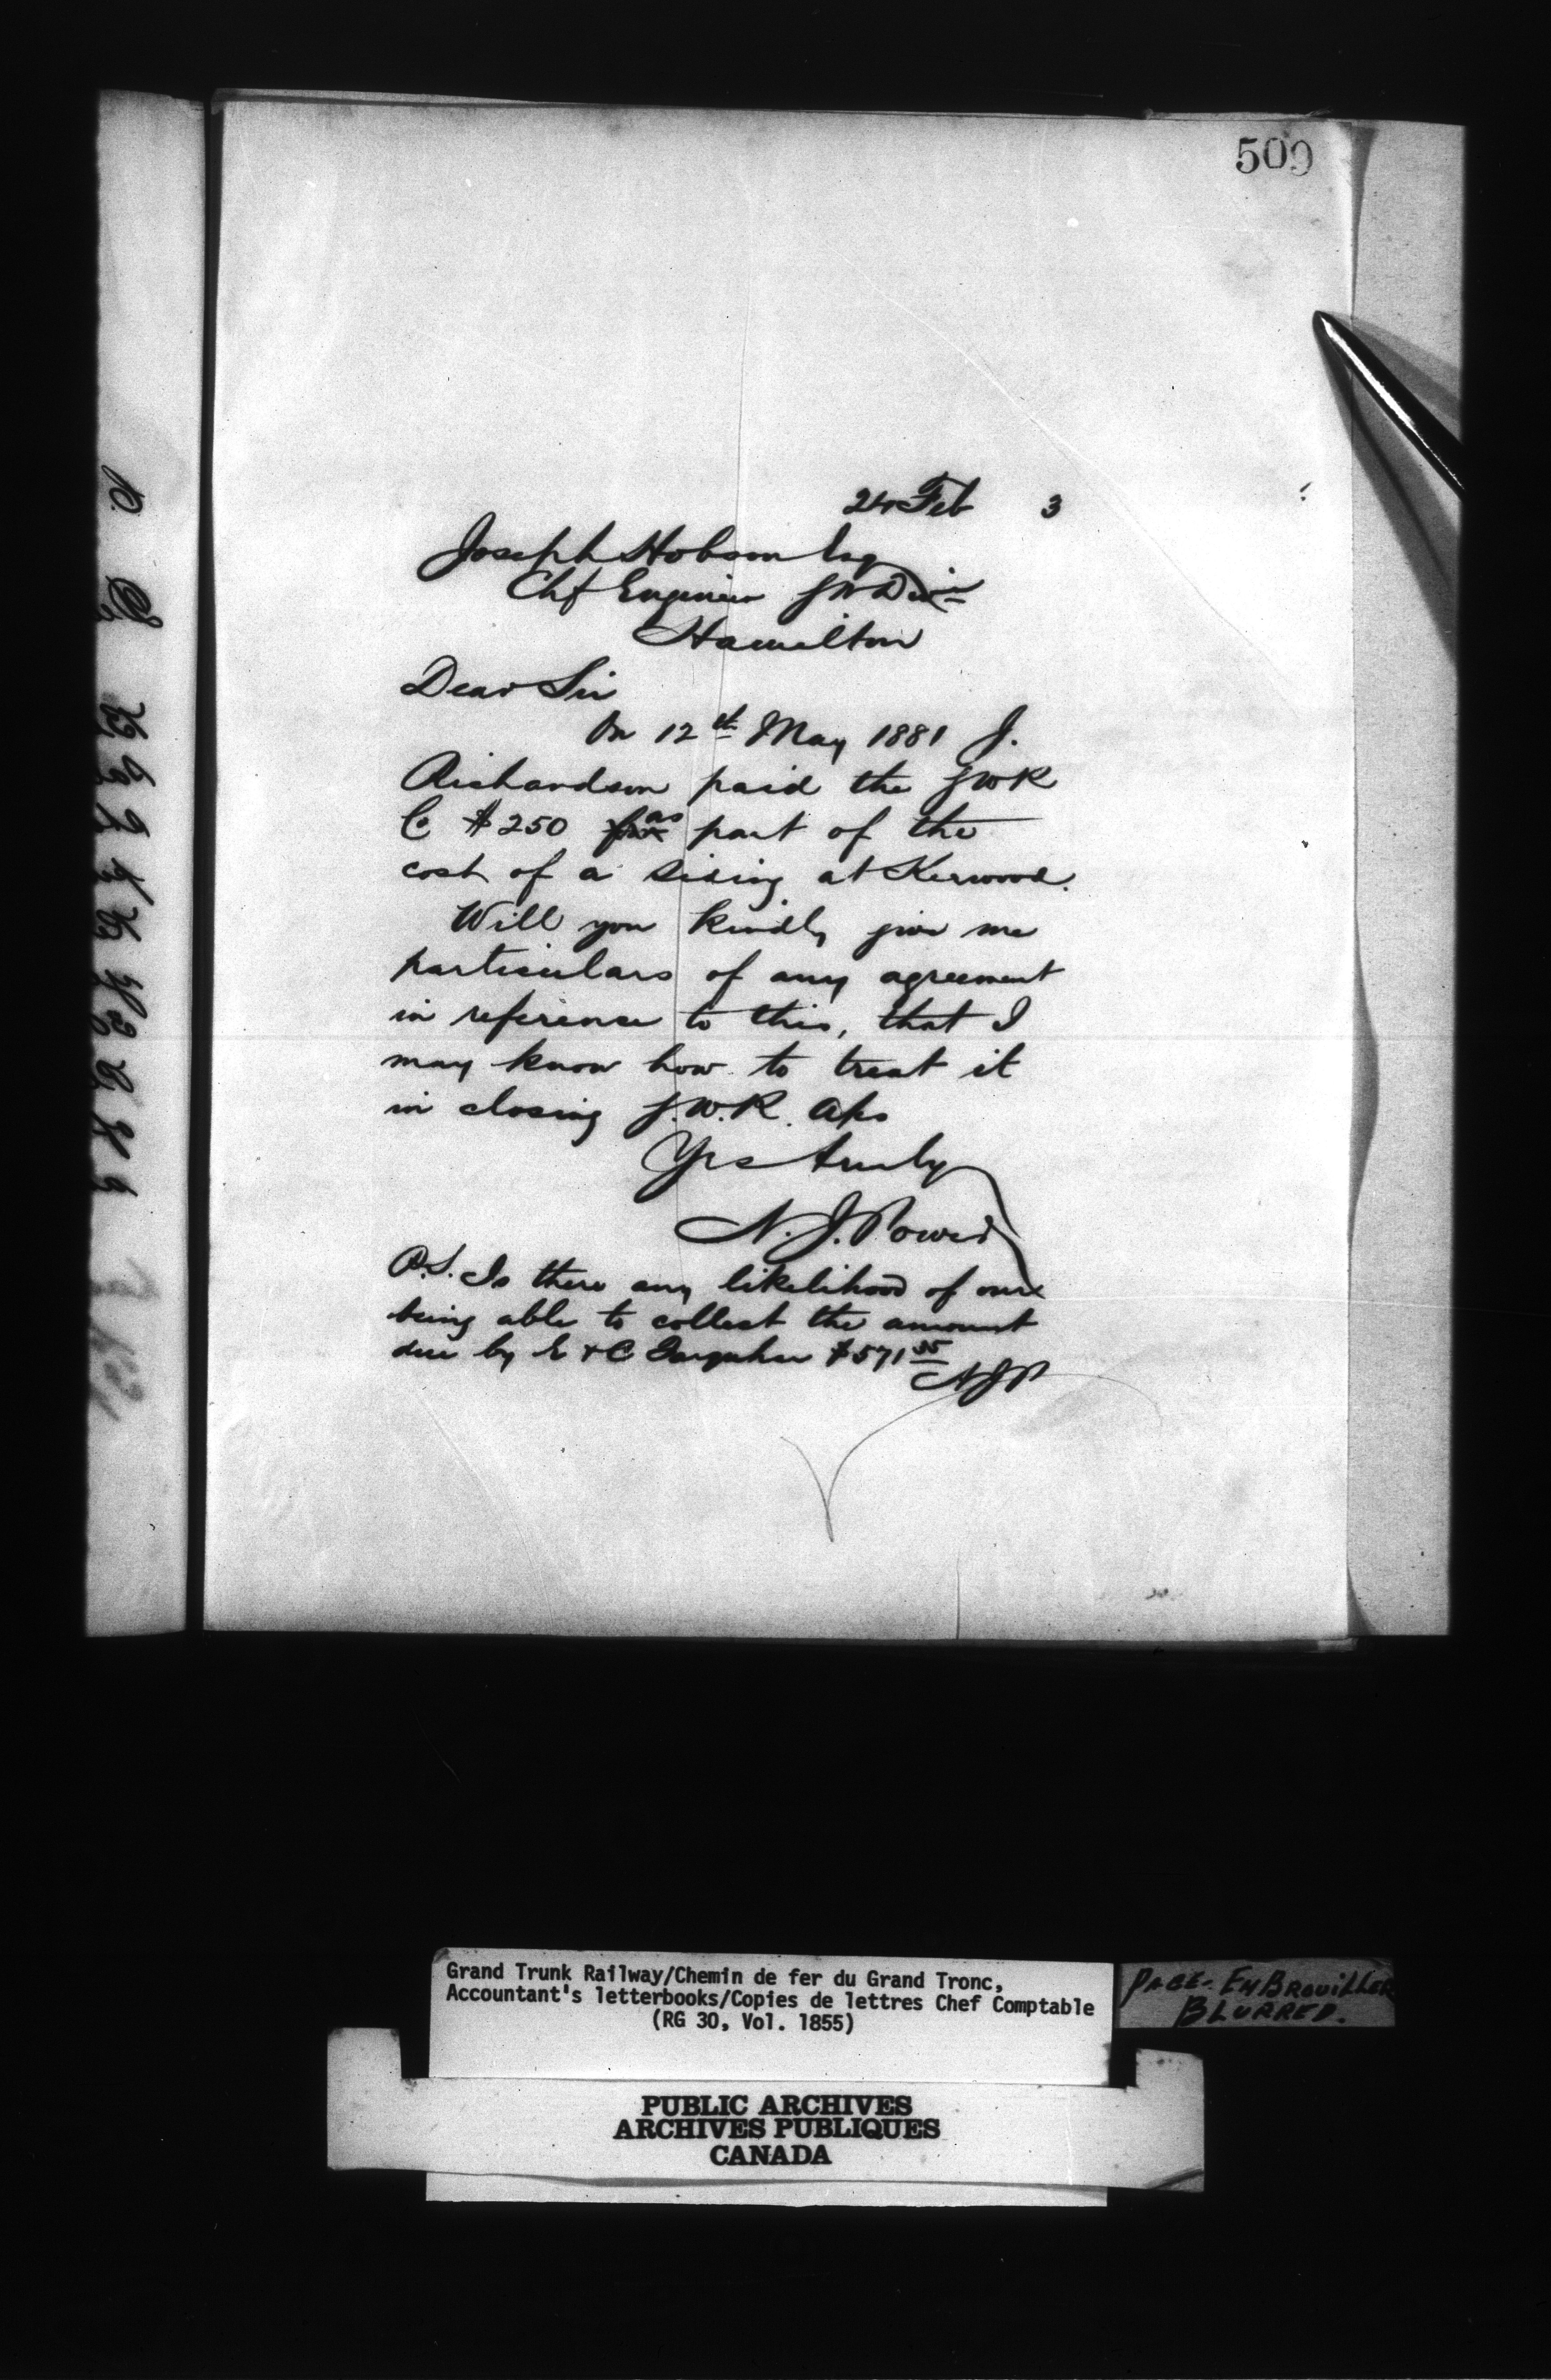 509
24 Feb 3
Joseph Hobson Esq
Chf Engineer GW Divn
Hamilton
Dear Sir
On 12th May 1881 J.
Richardson paid the GWR
Co $250 for as part of the
cost of a siding at Kerwood.
Will you kindly give me
particulars of any agreement
in reference to this, that I
may know how to treat it
in closing G.W.R. a/cs
Yrs truly
N. J. Power
P.S. Is there any likelihood of our
being able to collect the amount
due by E & C Farquhar $571 35
NJP
Grand Trunk Railway/Chemin de fer du Grand Tronc,
Accountant's letterbooks/Copies de lettres Chef Comptable
(RG 30, Vol. 1855)
PAGE. EMBROUILLER
BLURRED.
PUBLIC ARCHIVES
ARCHIVES PUBLIQUES
CANADA